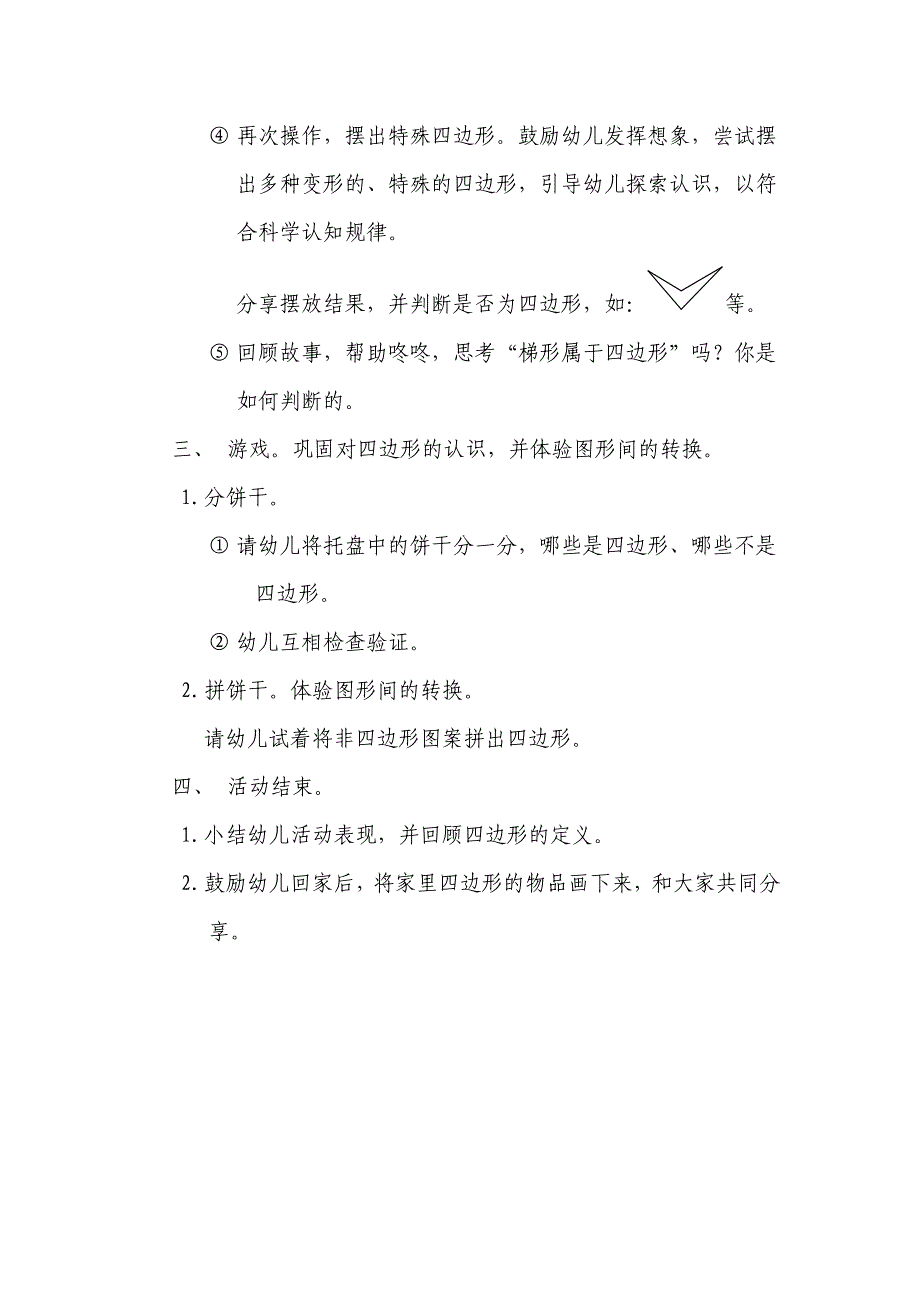 ④ 再次操作，摆出特殊四边形。鼓励幼儿发挥想象，尝试摆
出多种变形的、特殊的四边形，引导幼儿探索认识，以符
合科学认知规律。
分享摆放结果，并判断是否为四边形，如： 等。
⑤ 回顾故事，帮助咚咚，思考“梯形属于四边形”吗？你是
如何判断的。
三、 游戏。巩固对四边形的认识，并体验图形间的转换。
1. 分饼干。
① 请幼儿将托盘中的饼干分一分，哪些是四边形、哪些不是
四边形。
② 幼儿互相检查验证。
2. 拼饼干。体验图形间的转换。
请幼儿试着将非四边形图案拼出四边形。
四、 活动结束。
1. 小结幼儿活动表现，并回顾四边形的定义。
2. 鼓励幼儿回家后，将家里四边形的物品画下来，和大家共同分
享。